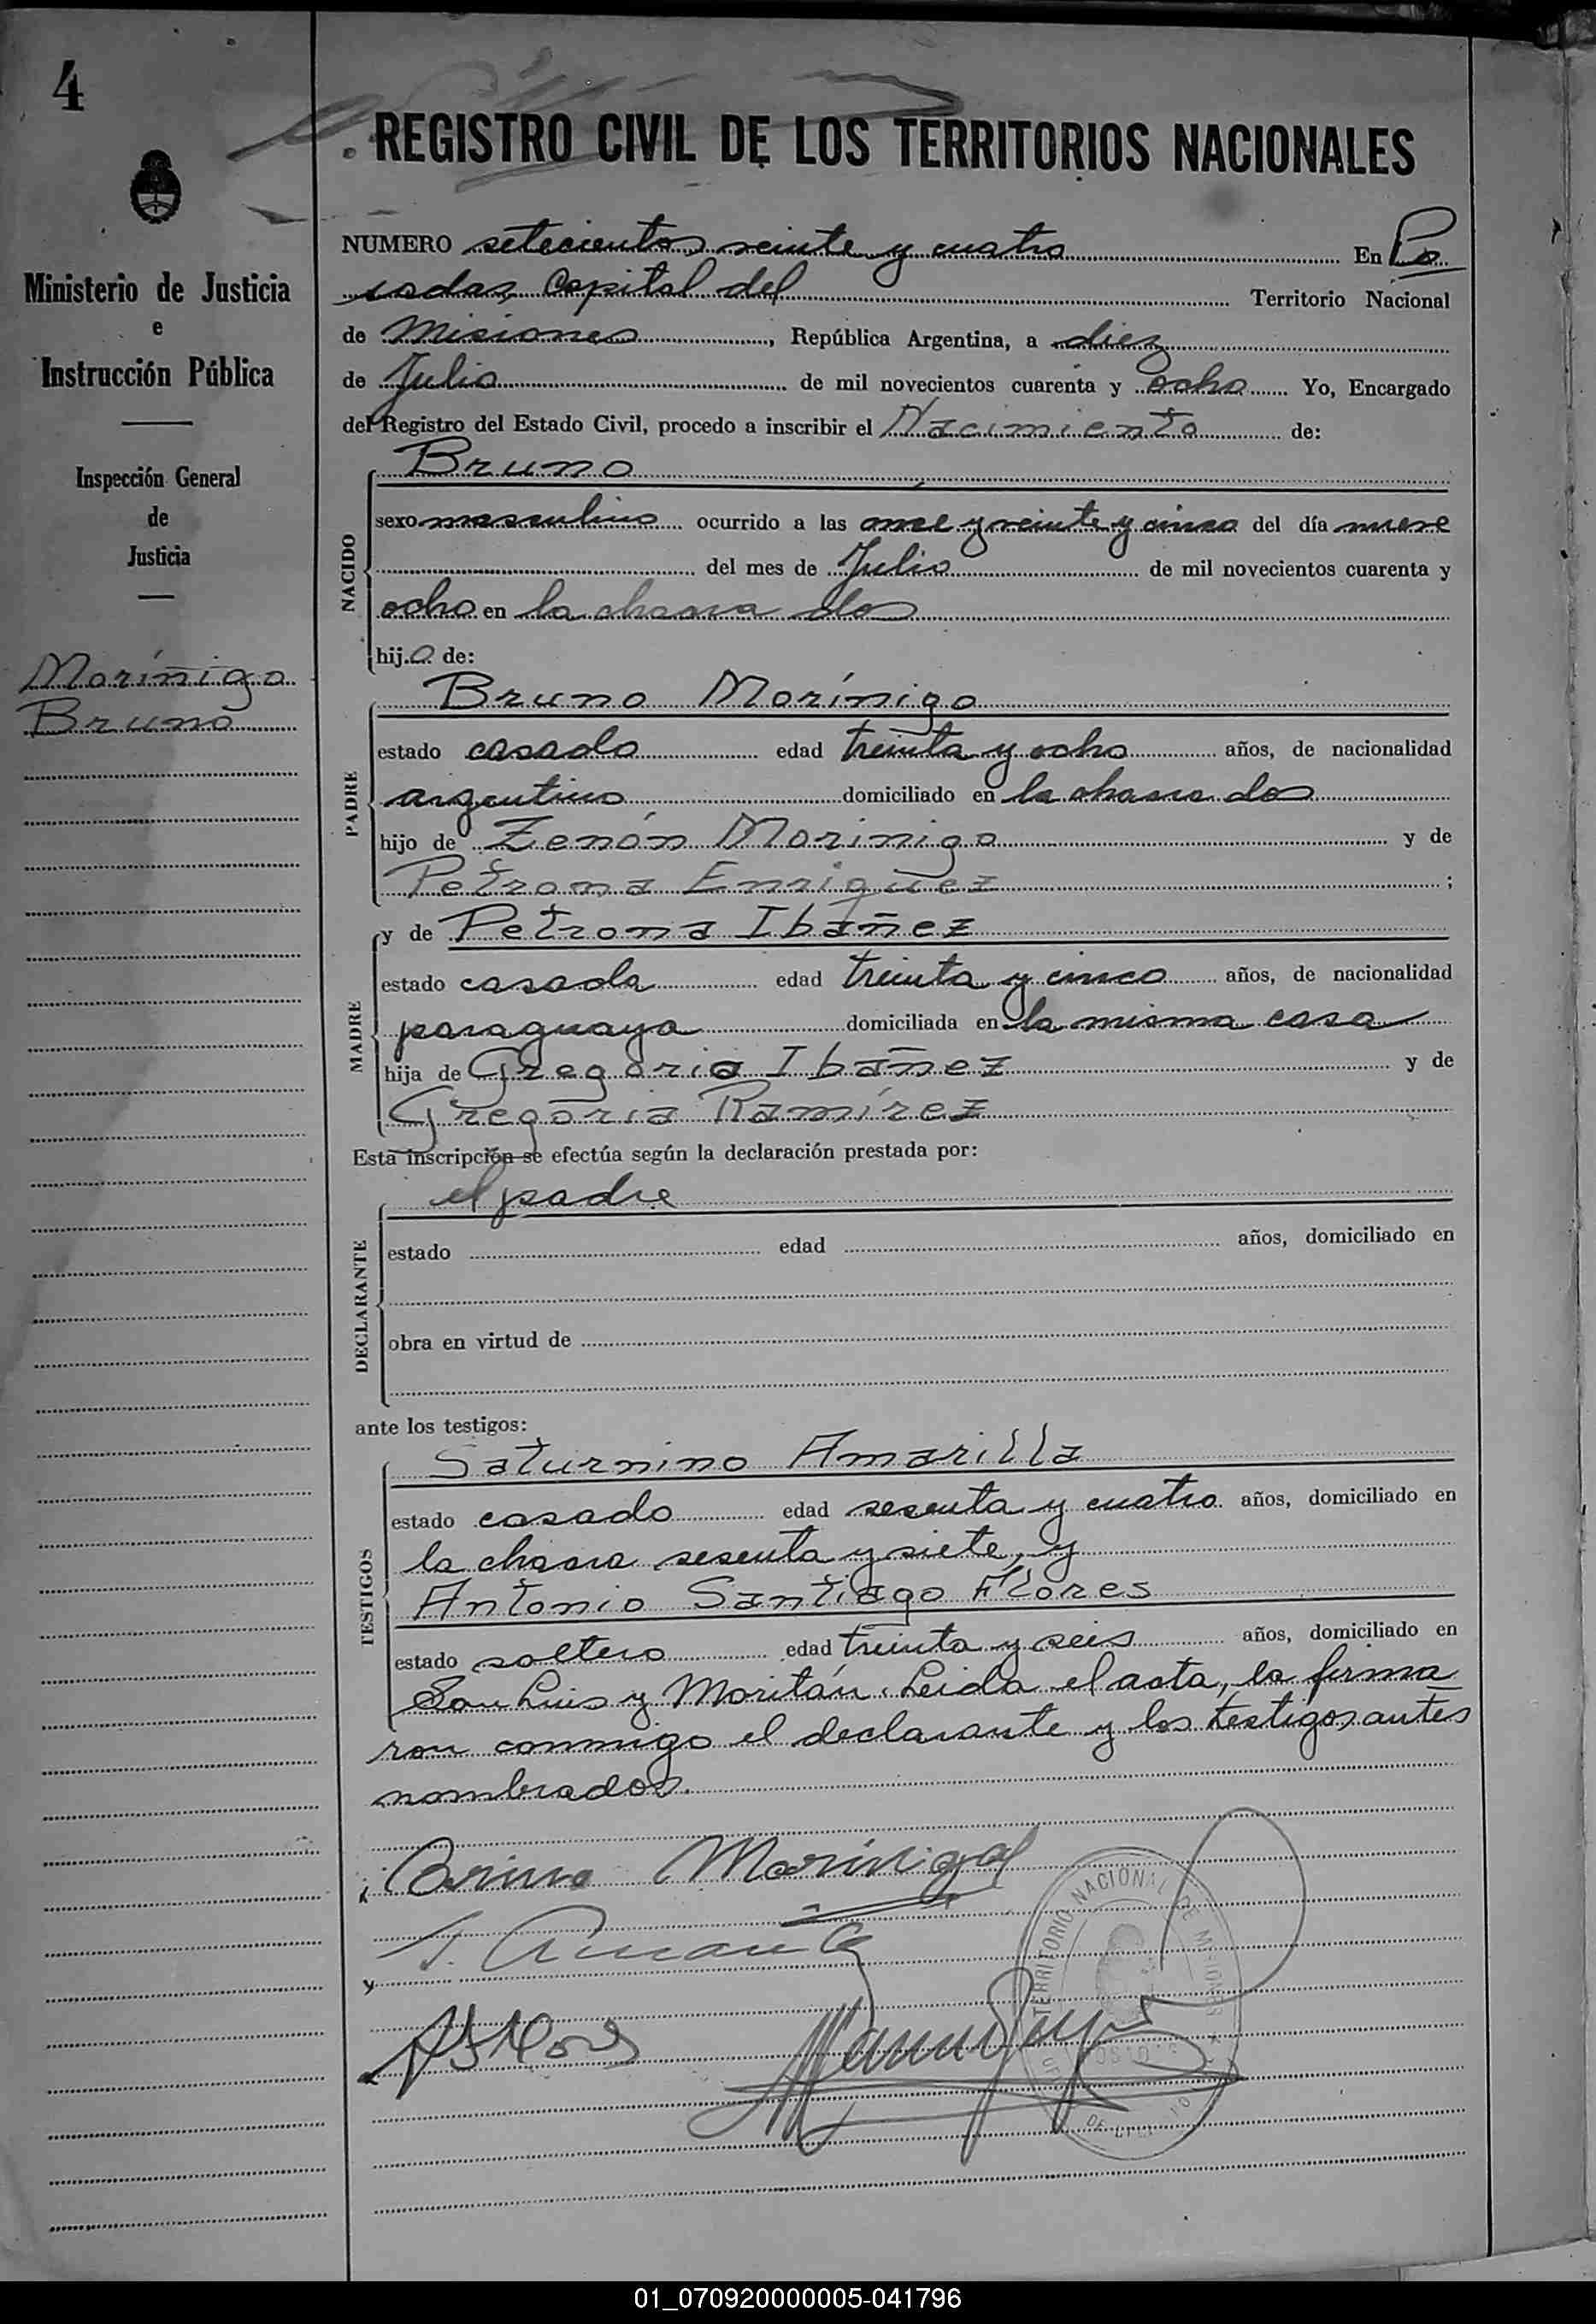 4
Ministerio de Justicia
e
Instrucción Pública
Inspección General
de
Justicia
Moríñigo
Bruno
REGISTRO CIVIL DE LOS TERRITORIOS NACIONALES
NUMERO setecientos veinte y cuatro En Po
sadas, Capital del Territorio Nacional
de Misiones, República Argentina, a diez
de Julio de mil novecientos cuarenta y ocho Yo, Encargado
del Registro del Estado Civil, procedo a inscribir el Nacimiento de:
Bruno
NACIDO
sexo masculino ocurrido a las once y veinte y cinco del día nueve
del mes de Julio de mil novecientos cuarenta y
ocho en la chacra dos
hijo de:
Bruno Moríñigo
PADRE
estado casado edad treinta y ocho años, de nacionalidad
argentino domiciliado en la chacra dos
hijo de Zenón Moriñigo y de
Petrona Enriquez ;
y de Petrona Ibáñez
MADRE
estado casada edad treinta y cinco años, de nacionalidad
paraguaya domiciliada en la misma casa
hija de Gregorio Ibáñez y de
Gregoria Ramírez
Esta inscripción se efectúa según la declaración prestada por:
el padre
DECLARANTE
estado edad años, domiciliado en
obra en virtud de
ante los testigos:
Saturnino Amarilla
TESTIGOS
estado casado edad sesenta y cuatro años, domiciliado en
la chacra sesenta y siete, y
Antonio Santiago Flores
estado soltero edad treinta y seis años, domiciliado en
San Luis y Moritán. Leida el acta, la firma
ron conmigo el declarante y los testigos antes
nombrados.
Bruno Moriñigo
S. Amarilla
TERRITORIO NACIONAL DE MISIONES
01_070920000005-041796